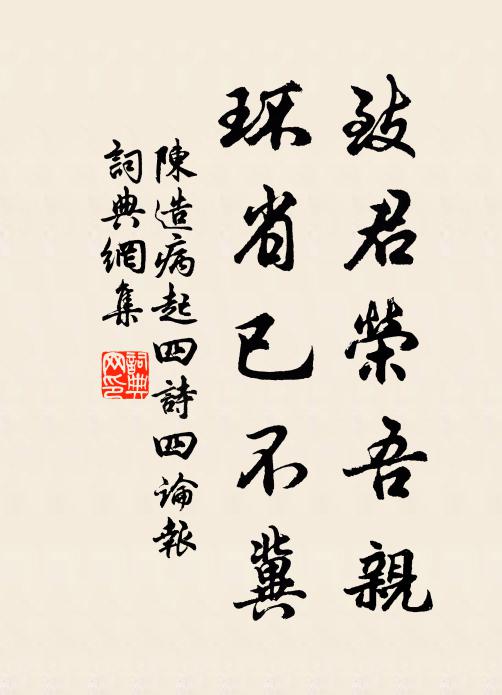 致君榮吾親
环省已不冀
陳造病起四詩四論報
詞典網集
詞典网印